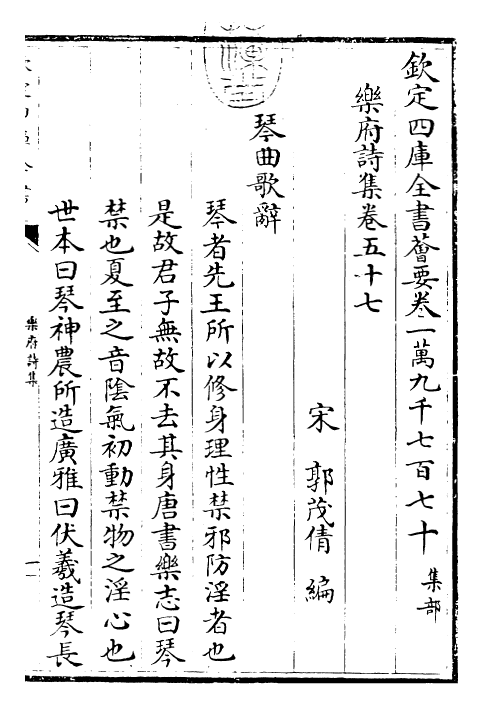 欽定四庫全書薈要卷一萬九千七百七十 集部
樂府詩集卷五十七
宋 郭茂倩 編
琴曲歌辭
琴者先王所以修身理性禁邪防淫者也
是故君子無故不去其身唐書樂志曰琴
禁也夏至之音陰氣初動禁物之淫心也
世本曰琴神農所造廣雅曰伏羲造琴長
樂府詩集
一